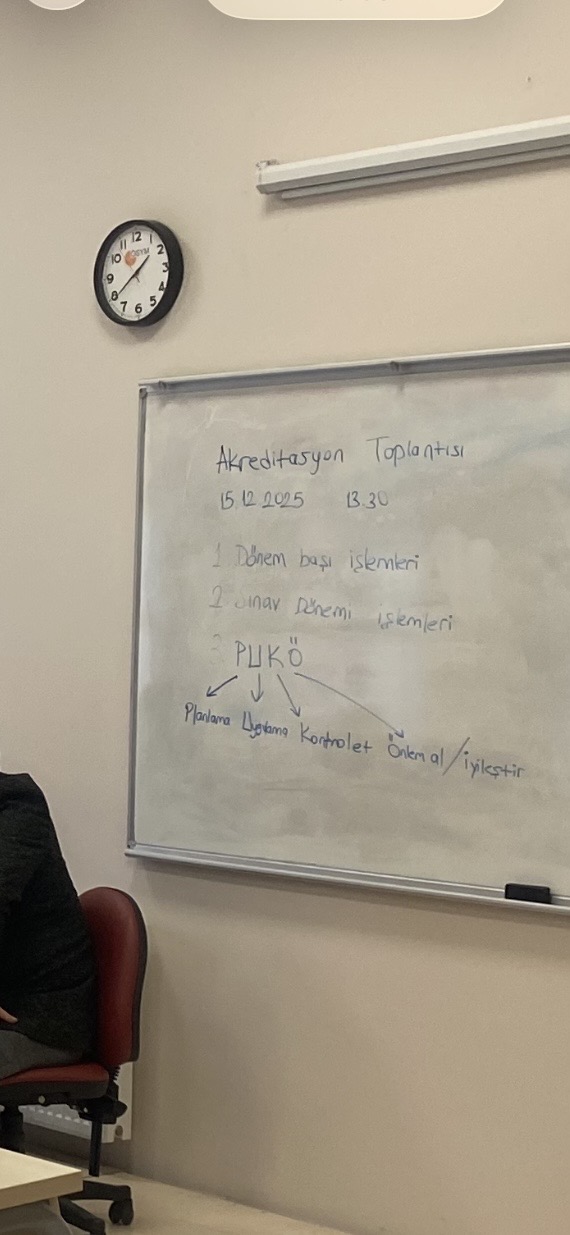 12
11 1
ÖSYM 2
10
3
9
4
8
5
7
6
Akreditasyon Toplantısı
15.12.2025 13.30
1 Dönem başı işlemleri
2 Sınav Dönemi işlemleri
3 PUKÖ
Planlama Uygulama Kontrolet Önlem al/iyileştir